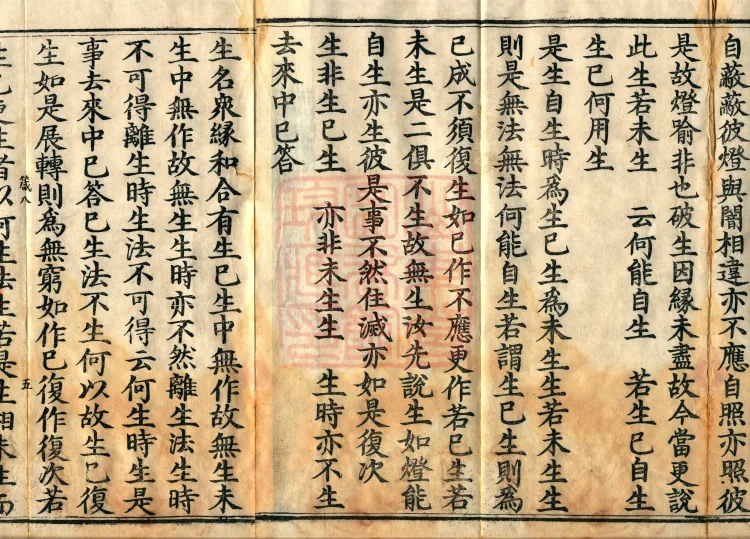 自蔽蔽彼燈與闇相違亦不應自照亦照彼
是故燈喻非也破生因緣未盡故今當更說
此生若未生　云何能自生　若生已自生
生已何用生
是生自生時為生已生為未生生若未生生
則是無法無法何能自生若謂生已生則為
已成不須復生如已作不應更作若已生若
未生是二俱不生故無生汝先說生如燈能
自生亦生彼是事不然住滅亦如是復次
生非生已生　亦非未生生　生時亦不生
去來中已答
生名衆緣和合有生已生中無作故無生未
生中無作故無生生時亦不然離生法生時
不可得離生時生法不可得云何生時生是
事去來中已答已生法不生何以故生已復
生如是展轉則為無窮如作已復作復次若
箴八　五
生已更生者以何生法生若是生相未生而